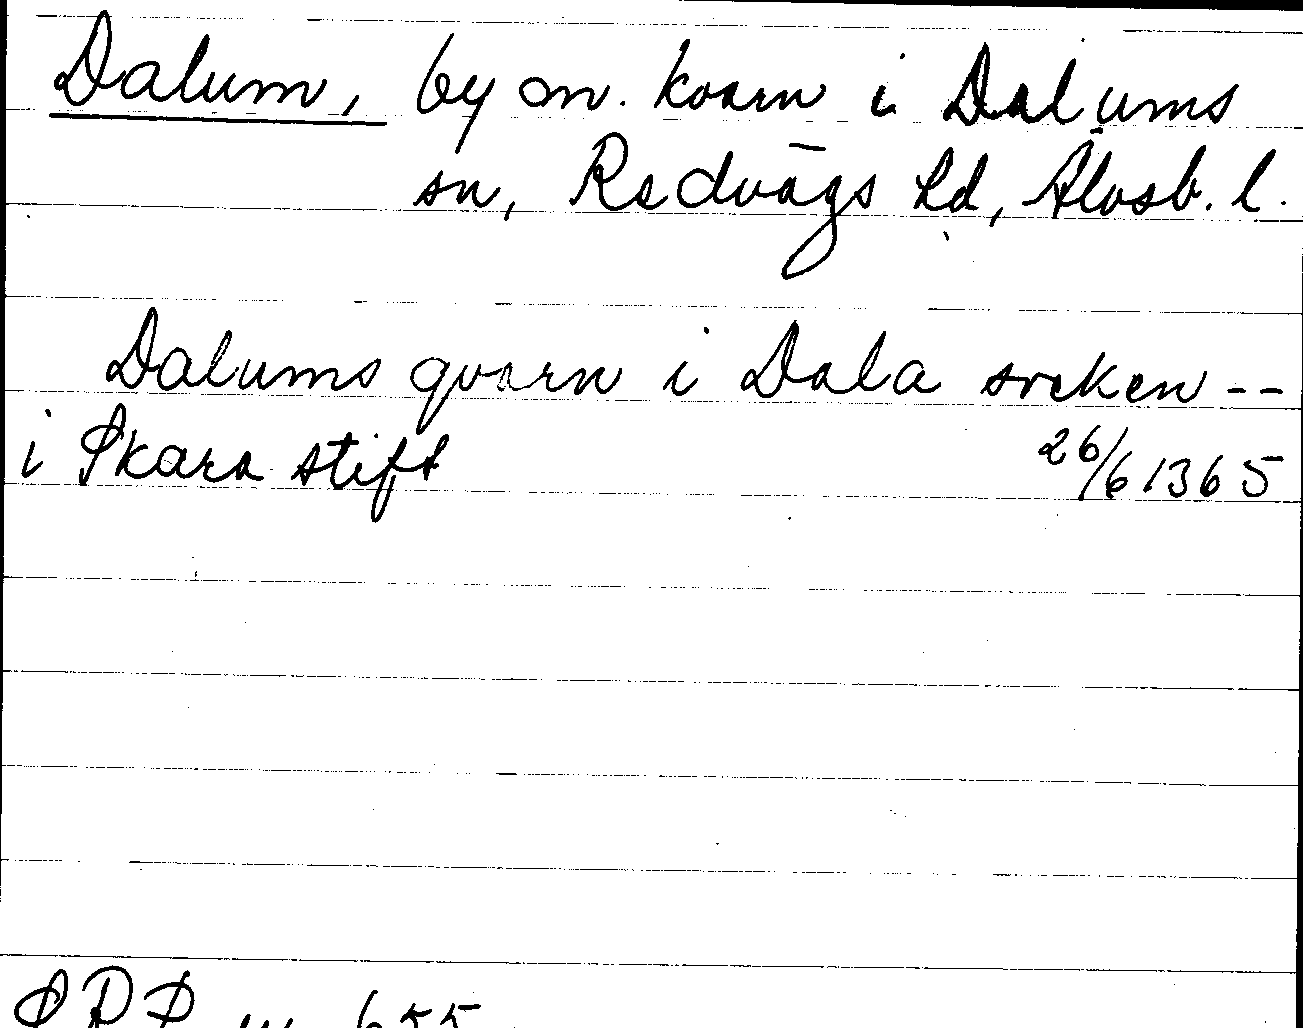 Dalum, by m. kvarn i Dalums
sn, Redvägs hd, Älvsb. l.
Dalums qvarn i Dala socken --
i Skara stift 26/6 1365
SRP nr 655